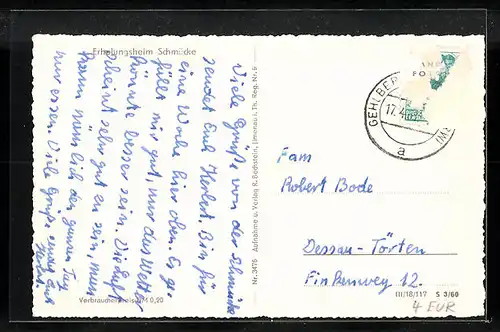 Erholungsheim Schmücke
Viele Grüße von der Schmücke
sendet Euch Herbert. Bin für
eine Woche hier oben. Es ge-
fällt mir gut, nur das Wetter
könnte besser sein. Die Luft
scheint sehr gut zu sein, man
kann nämlich den ganzen Tag
nur essen. Viele Grüße
Verbraucherpreis DM 0,20
Nr. 3476 Aufnahme u. Verlag R. Bechstein, Ilmenau i. Th. Reg. Nr. 5
GEHLBER
17.4
a
Fam
Robert Bode
Dessau-Törten
Finkenweg 12.
III/18/117 S 3/60
4 EUR